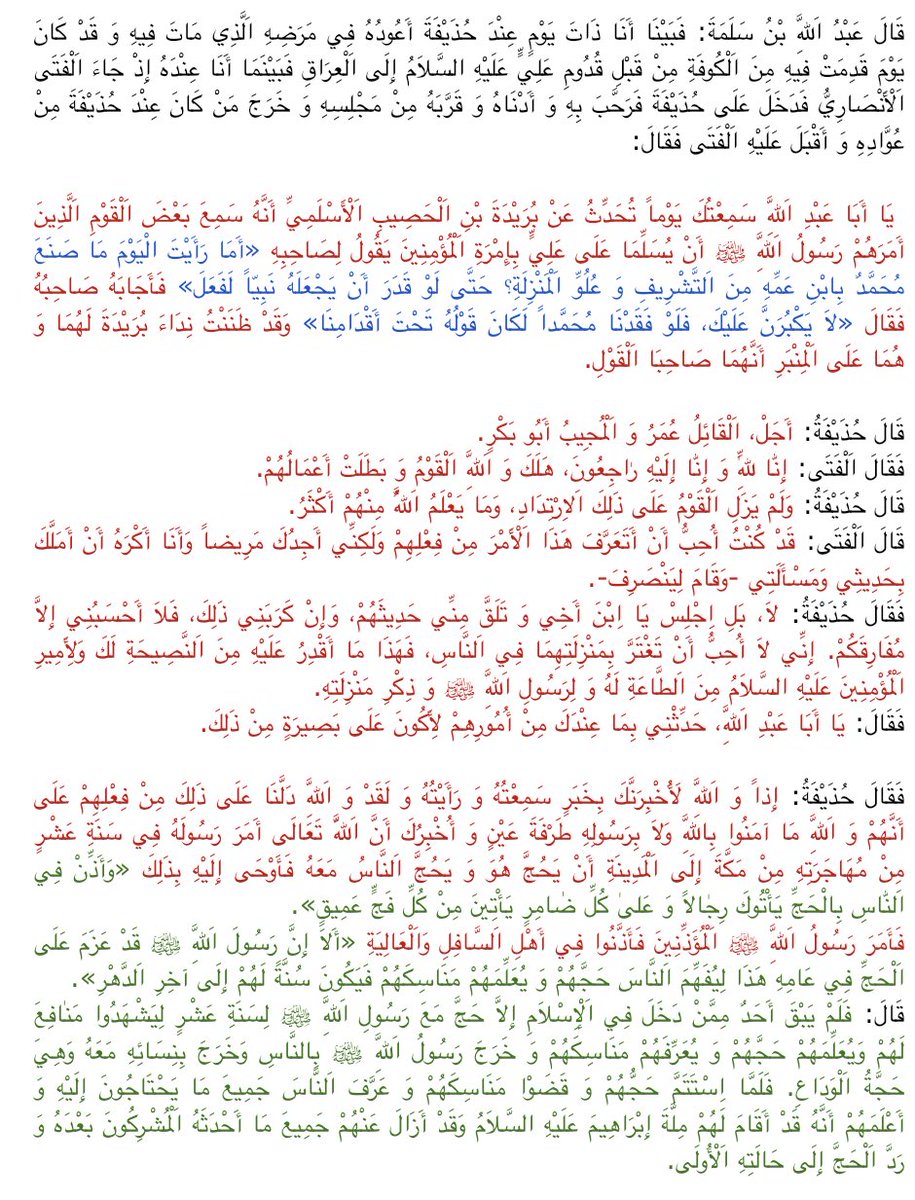 قَالَ عَبْدُ اَللَّهِ بْنُ سَلَمَةَ: فَبَيْنَا أَنَا ذَاتَ يَوْمٍ عِنْدَ حُذَيْفَةَ أَعُودُهُ فِي مَرَضِهِ اَلَّذِي مَاتَ فِيهِ وَ قَدْ كَانَ
يَوْمَ قَدِمَتْ فِيهِ مِنَ اَلْكُوفَةِ مِنْ قَبْلِ قُدُومِ عَلِيٍّ عَلَيْهِ السَّلاَمُ إِلَى اَلْعِرَاقِ فَبَيْنَمَا أَنَا عِنْدَهُ إِذْ جَاءَ اَلْفَتَى
اَلْأَنْصَارِيُّ فَدَخَلَ عَلَى حُذَيْفَةَ فَرَحَّبَ بِهِ وَ أَدْنَاهُ وَ قَرَّبَهُ مِنْ مَجْلِسِهِ وَ خَرَجَ مَنْ كَانَ عِنْدَ حُذَيْفَةَ مِنْ
عُوَّادِهِ وَ أَقْبَلَ عَلَيْهِ اَلْفَتَى فَقَالَ:
يَا أَبَا عَبْدِ اَللَّهِ سَمِعْتُكَ يَوْماً تُحَدِّثُ عَنْ بُرَيْدَةَ بْنِ اَلْحَصِيبِ اَلْأَسْلَمِيِّ أَنَّهُ سَمِعَ بَعْضَ اَلْقَوْمِ اَلَّذِينَ
أَمَرَهُمْ رَسُولُ اَللَّهِ ﷺ أَنْ يُسَلِّمَا عَلَى عَلِيٍّ بِإِمْرَةِ اَلْمُؤْمِنِينَ يَقُولُ لِصَاحِبِهِ «أَمَا رَأَيْتَ الْيَوْمَ مَا صَنَعَ
مُحَمَّدٌ بِابْنِ عَمِّهِ مِنَ اَلتَّشْرِيفِ وَ عُلُوِّ اَلْمَنْزِلَةِ؟ حَتَّى لَوْ قَدَرَ أَنْ يَجْعَلَهُ نَبِيّاً لَفَعَلَ» فَأَجَابَهُ صَاحِبُهُ
فَقَالَ «لاَ يَكْبُرَنَّ عَلَيْكَ، فَلَوْ فَقَدْنَا مُحَمَّداً لَكَانَ قَوْلُهُ تَحْتَ أَقْدَامِنَا» وَقَدْ ظَنَنْتُ نِدَاءَ بُرَيْدَةَ لَهُمَا وَ
هُمَا عَلَى اَلْمِنْبَرِ أَنَّهُمَا صَاحِبَا اَلْقَوْلِ.
قَالَ حُذَيْفَةُ: أَجَلْ، اَلْقَائِلُ عُمَرُ وَ اَلْمُجِيبُ أَبُو بَكْرٍ.
فَقَالَ اَلْفَتَى: إِنَّا لِلَّهِ وَ إِنَّا إِلَيْهِ رٰاجِعُونَ، هَلَكَ وَ اَللَّهِ اَلْقَوْمُ وَ بَطَلَتْ أَعْمَالُهُمْ.
قَالَ حُذَيْفَةُ: وَلَمْ يَزَلِ اَلْقَوْمُ عَلَى ذَلِكَ اَلاِرْتِدَادِ، وَمَا يَعْلَمُ اَللَّهُ مِنْهُمْ أَكْثَرُ.
قَالَ اَلْفَتَى: قَدْ كُنْتُ أُحِبُّ أَنْ أَتَعَرَّفَ هَذَا اَلْأَمْرَ مِنْ فِعْلِهِمْ وَلَكِنِّي أَجِدُكَ مَرِيضاً وَأَنَا أَكْرَهُ أَنْ أَمَلَّكَ
بِحَدِيثِي وَمَسْأَلَتِي -وَقَامَ لِيَنْصَرِفَ-.
فَقَالَ حُذَيْفَةُ: لاَ، بَلِ اِجْلِسْ يَا اِبْنَ أَخِي وَ تَلَقَّ مِنِّي حَدِيثَهُمْ، وَإِنْ كَرَبَنِي ذَلِكَ، فَلاَ أَحْسَبُنِي إِلاَّ
مُفَارِقَكُمْ. إِنِّي لاَ أُحِبُّ أَنْ تَغْتَرَّ بِمَنْزِلَتِهِمَا فِي اَلنَّاسِ، فَهَذَا مَا أَقْدِرُ عَلَيْهِ مِنَ اَلنَّصِيحَةِ لَكَ وَلِأَمِيرِ
اَلْمُؤْمِنِينَ عَلَيْهِ السَّلاَمُ مِنَ اَلطَّاعَةِ لَهُ وَ لِرَسُولِ اَللَّهِ ﷺ وَ ذِكْرِ مَنْزِلَتِهِ.
فَقَالَ: يَا أَبَا عَبْدِ اَللَّهِ، حَدِّثْنِي بِمَا عِنْدَكَ مِنْ أُمُورِهِمْ لِأَكُونَ عَلَى بَصِيرَةٍ مِنْ ذَلِكَ.
فَقَالَ حُذَيْفَةُ: إِذاً وَ اَللَّهِ لَأُخْبِرَنَّكَ بِخَبَرٍ سَمِعْتُهُ وَ رَأَيْتُهُ وَ لَقَدْ وَ اَللَّهِ دَلَّنَا عَلَى ذَلِكَ مِنْ فِعْلِهِمْ عَلَى
أَنَّهُمْ وَ اَللَّهِ مَا آمَنُوا بِاللَّهِ وَلاَ بِرَسُولِهِ طَرْفَةَ عَيْنٍ وَ أُخْبِرُكَ أَنَّ اَللَّهَ تَعَالَى أَمَرَ رَسُولَهُ فِي سَنَةِ عَشْرٍ
مِنْ مُهَاجَرَتِهِ مِنْ مَكَّةَ إِلَى اَلْمَدِينَةِ أَنْ يَحُجَّ هُوَ وَ يَحُجَّ اَلنَّاسُ مَعَهُ فَأَوْحَى إِلَيْهِ بِذَلِكَ «وَأَذِّنْ فِي
اَلنّٰاسِ بِالْحَجِّ يَأْتُوكَ رِجٰالاً وَ عَلىٰ كُلِّ ضٰامِرٍ يَأْتِينَ مِنْ كُلِّ فَجٍّ عَمِيقٍ».
فَأَمَرَ رَسُولُ اَللَّهِ ﷺ اَلْمُؤَذِّنِينَ فَأَذَّنُوا فِي أَهْلِ اَلسَّافِلِ وَالْعَالِيَةِ «أَلاَ إِنَّ رَسُولَ اَللَّهِ ﷺ قَدْ عَزَمَ عَلَى
اَلْحَجِّ فِي عَامِهِ هَذَا لِيُفَهِّمَ اَلنَّاسَ حَجَّهُمْ وَ يُعَلِّمَهُمْ مَنَاسِكَهُمْ فَيَكُونَ سُنَّةً لَهُمْ إِلَى آخِرِ اَلدَّهْرِ».
قَالَ: فَلَمْ يَبْقَ أَحَدٌ مِمَّنْ دَخَلَ فِي اَلْإِسْلاَمِ إِلاَّ حَجَّ مَعَ رَسُولِ اَللَّهِ ﷺ لِسَنَةِ عَشْرٍ لِيَشْهَدُوا مَنٰافِعَ
لَهُمْ وَيُعَلِّمَهُمْ حَجَّهُمْ وَ يُعَرِّفَهُمْ مَنَاسِكَهُمْ وَ خَرَجَ رَسُولُ اَللَّهِ ﷺ بِالنَّاسِ وَخَرَجَ بِنِسَائِهِ مَعَهُ وَهِيَ
حَجَّةُ اَلْوَدَاعِ. فَلَمَّا اِسْتَتَمَّ حَجُّهُمْ وَ قَضَوْا مَنَاسِكَهُمْ وَ عَرَّفَ اَلنَّاسَ جَمِيعَ مَا يَحْتَاجُونَ إِلَيْهِ وَ
أَعْلَمَهُمْ أَنَّهُ قَدْ أَقَامَ لَهُمْ مِلَّةَ إِبْرَاهِيمَ عَلَيْهِ السَّلاَمُ وَقَدْ أَزَالَ عَنْهُمْ جَمِيعَ مَا أَحْدَثَهُ اَلْمُشْرِكُونَ بَعْدَهُ وَ
رَدَّ اَلْحَجَّ إِلَى حَالَتِهِ اَلْأُولَى.